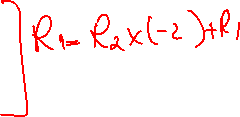 ] R₁ = R₂ x (-2) + R₁